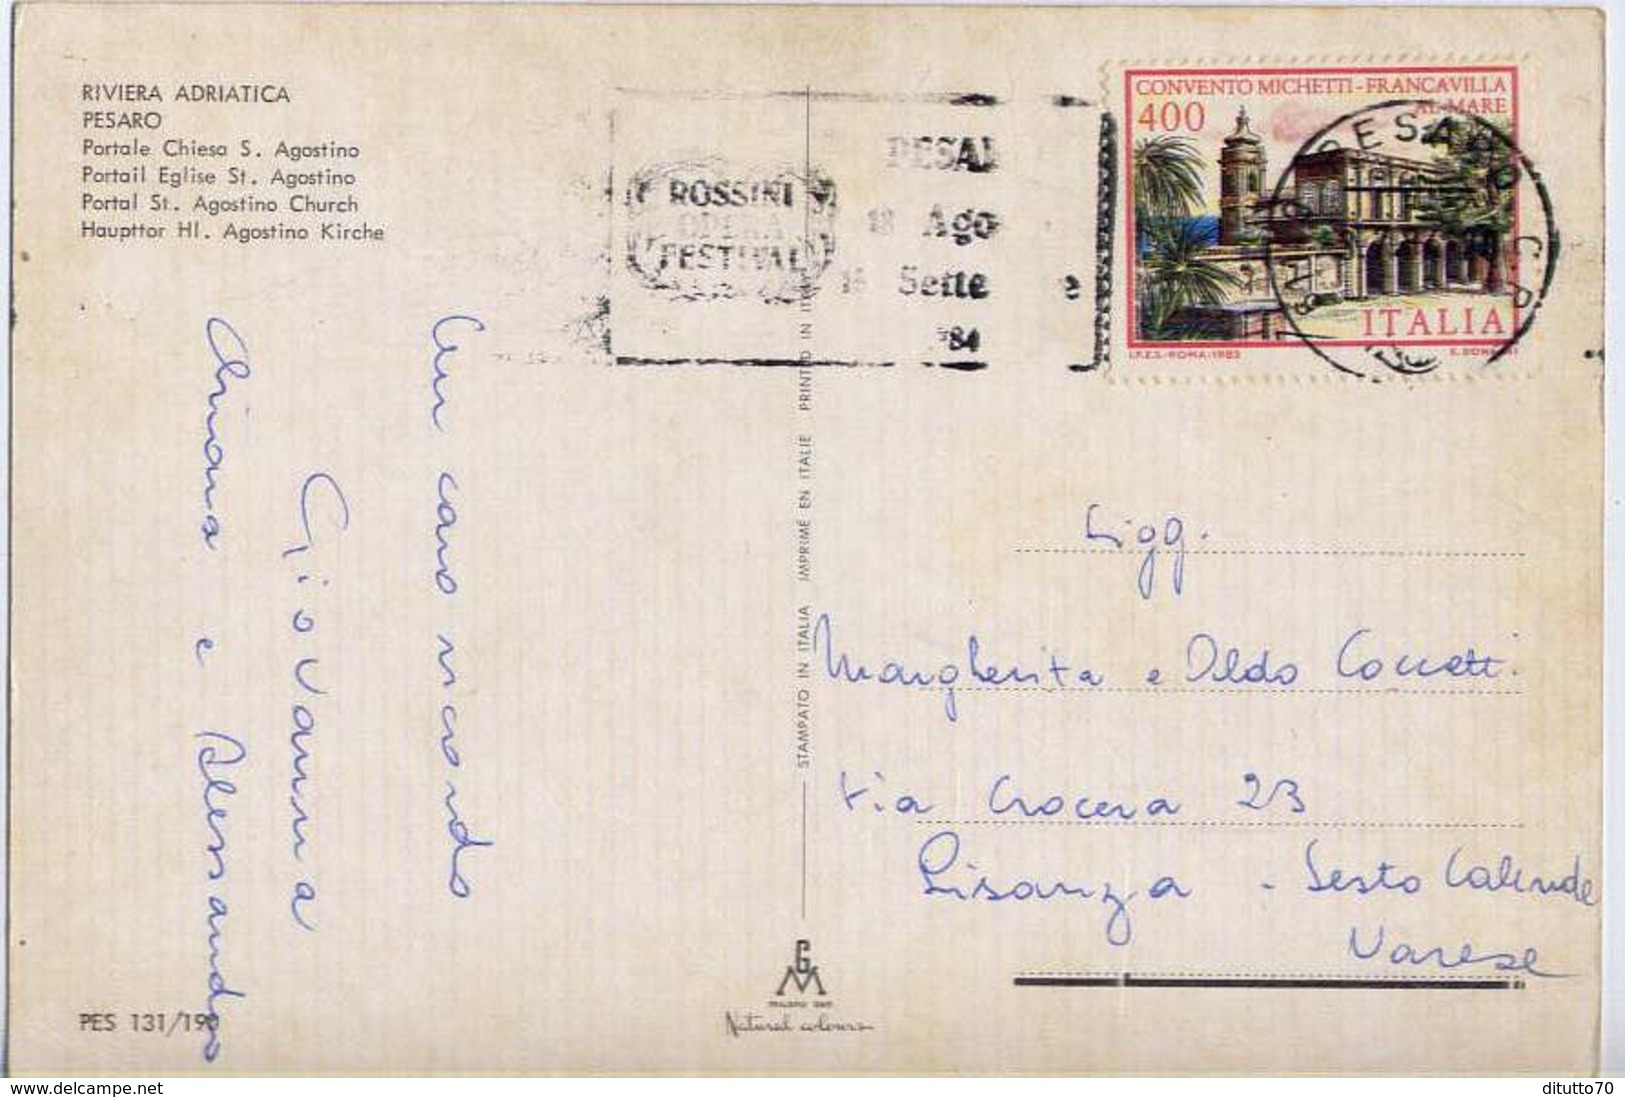 RIVIERA ADRIATICA
PESARO
Portale Chiesa S. Agostino
Portail Eglise St. Agostino
Portal St. Agostino Church
Haupttor Hl. Agostino Kirche
ROSSINI
OPERA
FESTIVAL
18 Ago
Sette e
'84
CONVENTO MICHETTI-FRANCAVILLA
AL MARE
400
ITALIA
I.P.Z.S.-ROMA-1983
PESARO C.P.
Un caro ricordo
Giovanna
Chiara e Alessandro
STAMPATO IN ITALIA IMPRIMÉ EN ITALIE PRINTED IN ITALY
Sigg.
Margherita e Aldo
Via Crocera 23
Lisanza - Sesto Calende
Varese
G
M
Natural colours
PES 131/190
www.delcampe.net
ditutto70